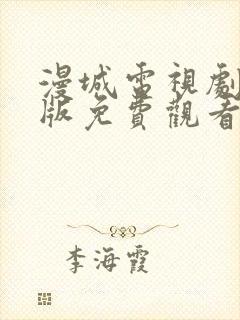 漫城電視劇
版免費觀看
李海霞